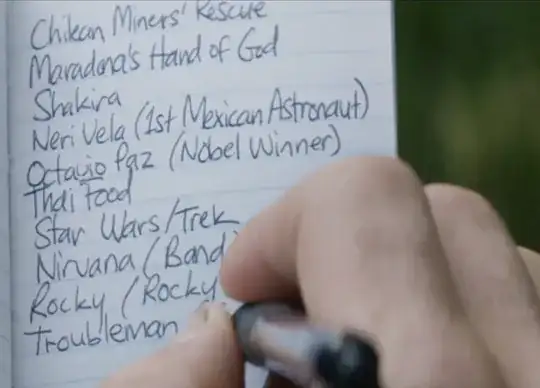 Chilean Miners' Rescue
Maradona's Hand of God
Shakira
Neri Vela (1st Mexican Astronaut)
Octavio Paz (Nobel Winner)
Thai Food
Star Wars/Trek
Nirvana (Band)
Rocky (Rocky
Troubleman